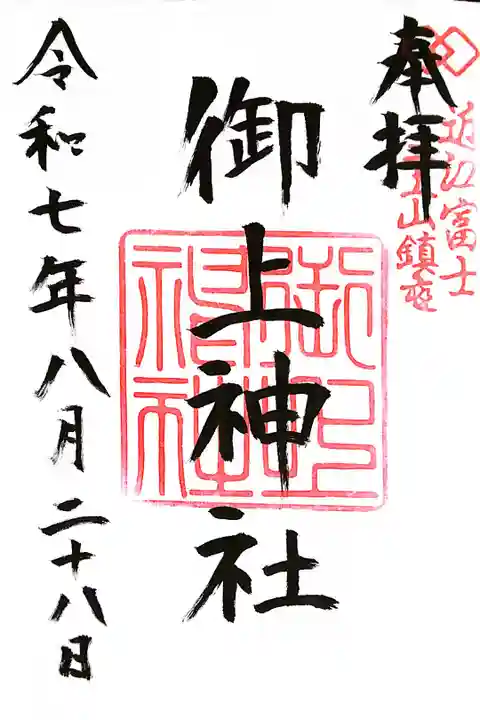 奉拝
近江富士
山鎮座
御上神社
御上神社
令和七年八月二十八日